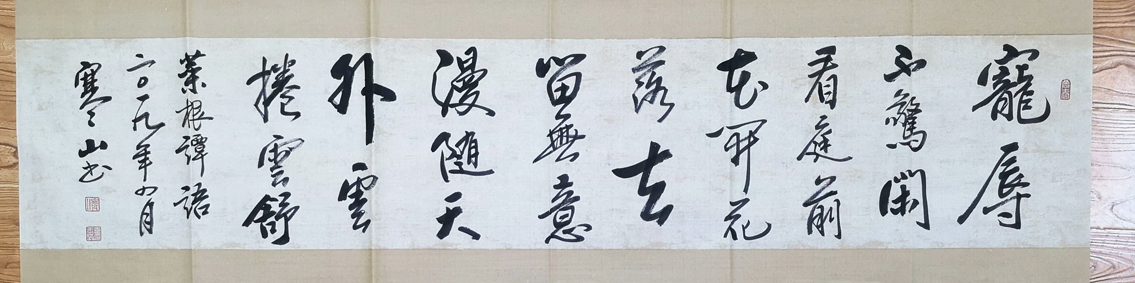 寵辱
不驚閑
看庭前
花開花
落去
留無意
漫随天
外雲
捲雲舒
菜根譚語
二〇一九年 月
寒山书